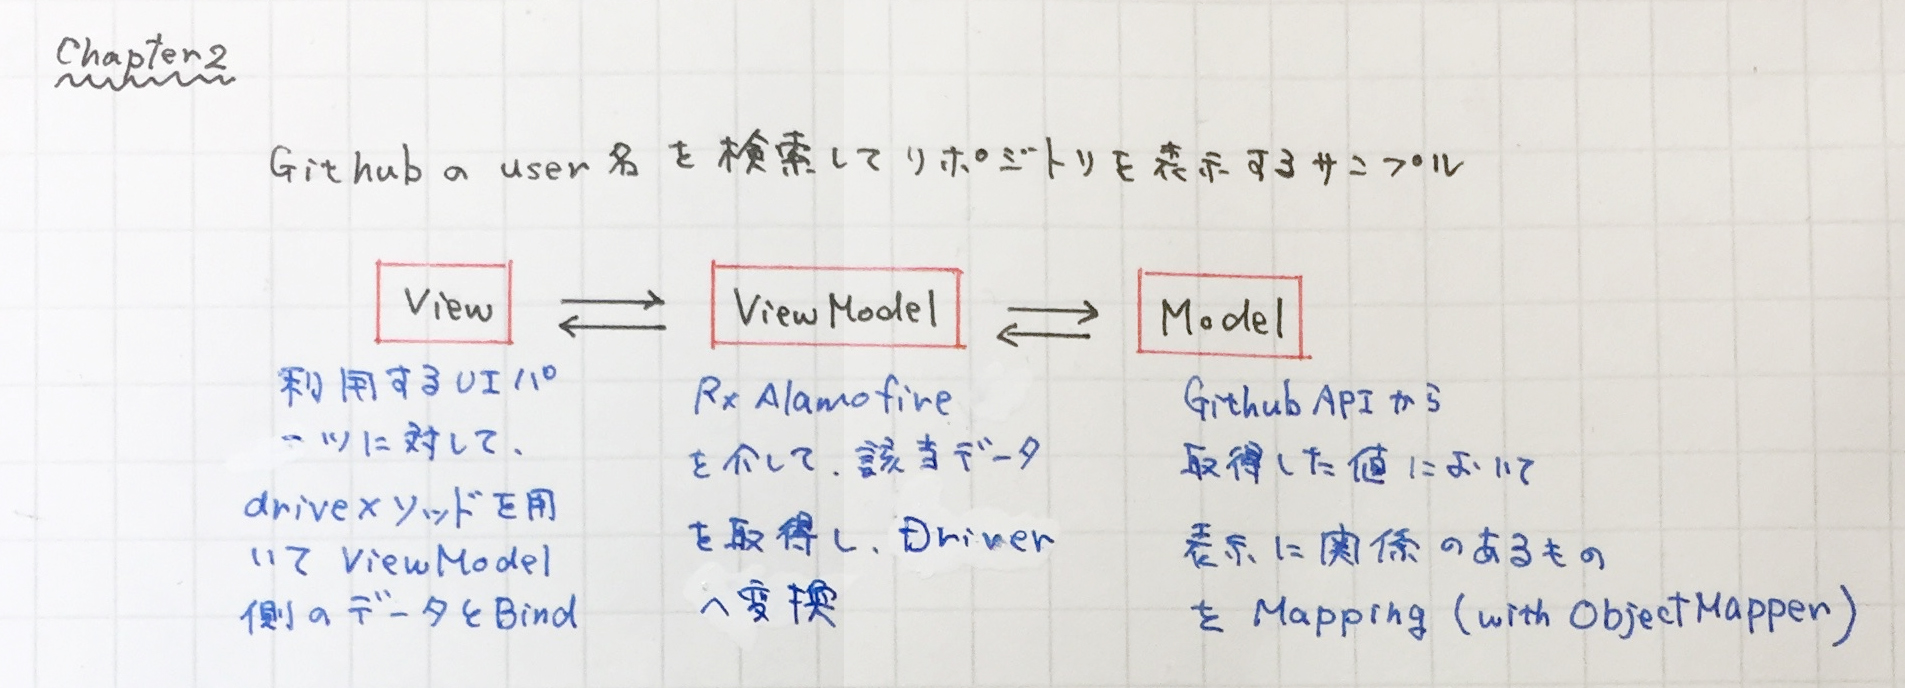 Chapter2
Githubの user名 を 検索して リポジトリを表示するサンプル
View
ViewModel
Model
利用するUIパ
ーツに対して、
driveメソッドを用
いて ViewModel
側のデータをBind
RxAlamofire
を介して、該当データ
を取得し、Driver
へ変換
Github APIから
取得した値において
表示に関係のあるもの
を Mapping (with ObjectMapper)